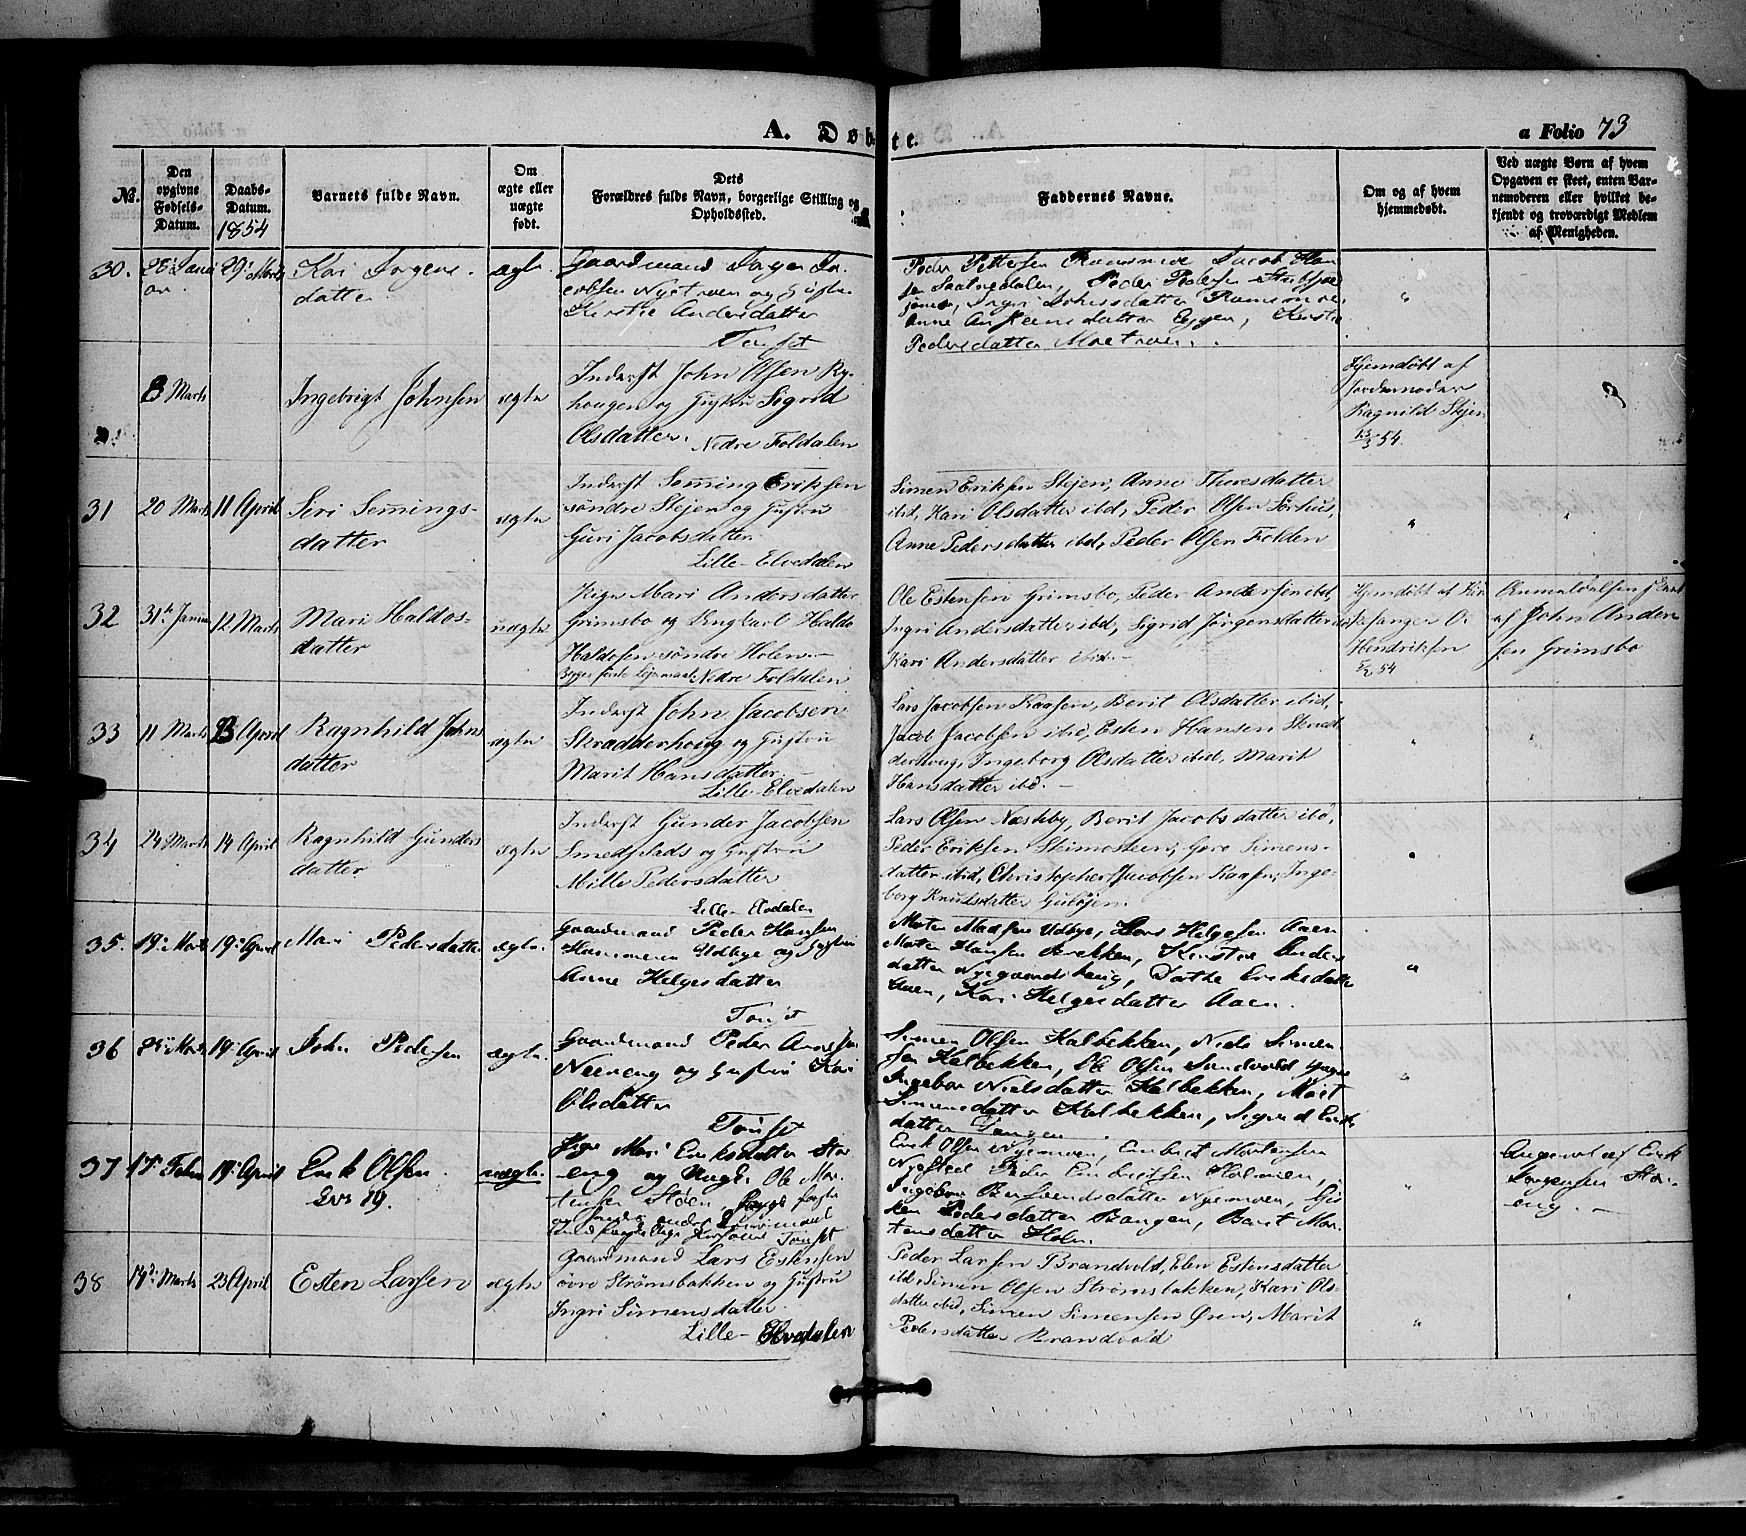 A. Døbte.
a Folio 73
No.
Den opgivne Fødsels-Datum.
Daabs-Datum. 1854
Barnets fulde Navn.
Om ægte eller uægte født.
Dets Forældres fulde Navn, borgerlige Stilling og Opholdssted.
Faddernes Navne.
Om og af hvem hjemmedøbt.
Ved uægte Børn af hvem Opgaven er skeet, enten Barnemoderen eller hvilket bekjendt og troværdigt Medlem af Menigheden.
30.
29 Marts
Kari Jørgens-
datter
ægte
Gaardmand Jørgen Ja-
cobsen Nyetrøen og Hustru
Kirstie Andersdatter
Tønset
Peder Pettersen Ramsmoe Jacob Han-
sen
Anne
Pedersdatter Moetrøen.
8 Marts
Ingebrigt Johnsen
ægte
Inderst John Olsen Ry-
hougen og Hustru Sigrid
Olsdatter. Nedre Foldalen
Hjemdøbt af
Jordemoder
Ragnild Stejen
13/3 54.
31
20 Marts
11 April
Siri Semings-
datter
ægte
Inderst Seming Eriksen
søndre Stejen og Hustru
Guri Jacobsdatter
Lille-Elvedalen
Simen Eriksen Stejen, Anne Thoresdatter
ibid, Kari Olsdatter ibd, Peder Olsen Sørhus,
Anne Pedersdatter ibd, Peder Olsen Folden
32
31te Januar
12 Marts
Mari Haldos-
datter
uægte
Pige Mari Andersdatter
Grimsbo og Ungkarl Haldo
Haldosen søndre Holen.
Begges første Lejermaal. Nedre Foldalen
Ole Estensen Grimsbo, Peder Andersen ibd
Ingri Andersdatter ibd, Sigrid Jørgensdatter ibd
Kari Andersdatter ibid.
Hjemdøbt af Kir-
kesanger O.
Hendriksen
5/2 54
Anmeldelsen skeet
af John Ander-
sen Grimsbo
33
11 Marts
13 April
Ragnhild Johns
datter
ægte
Inderst John Jacobsen
Skradderhoug og Hustru
Marit Hansdatter.
Lille-Elvedalen
Lars Jacobsen Kaasen, Berit Olsdatter ibid,
Jacob Jacobsen ibid, Esten Hansen Skrad-
derhoug, Ingeborg Olsdatter ibid, Marit
Hansdatter ibd.
34
24 Marts
14 April
Ragnhild Gunders
datter
ægte
Inderst Gunder Jacobsen
Smedplads og Hustru
Mille Pedersdatter
Lille-Elvdalen
Lars Olsen Næsteby, Berit Jacobsdatter ibd,
Peder Eriksen Steimosteen, Goro Simens-
datter ibid, Christopher Jacobsen Kaasen, Inge-
borg Knudsdatter
35.
19 Marts
19 April
Mari Pedersdatter
ægte.
Gaardmand Peder Hansen
Hammeren Udbye og Hustru
Anne Helgesdatter
Tønset
Morten Madsen Udbye, Lars Helgesen Aaen
Morten Hansen Brekken, Kirstie Anders
datter Nyegaardshaug, Dorthe Eriksdatter
Aaen, Kari Helgesdatter Aaen.
36
Marts
19 April
John Pedersen
ægte.
Gaardmand Peder Arnesen
Neereng og Hustru Kari
Olsdatter
Tønset
Simen Olsen Kalbekken, Niels Simen-
sen Kalbekken, Ole Olsen Sandvold
Ingebor Nielsdatter Kalbekken, Marit
Simensdatter Kalbekken, Sigrid
datter
37
17 Febr
19 April
Erik Olsen
Lvs 19.
uægte.
Pige Mari Eriksdatter Stor-
eng og Ungk. Ole Mor-
tensen Støen.
Tønset
Erik Olsen Nyemoen, Embret Mortensen
Nysted Peder Embretsen Holmen,
Ingebor Bersvendsdatter Nyemoen, Gu-
Pedersdatter Bangen, Berit Mor-
tensdatter Holm.
Angivet af Erik
Jørgensen Stor-
eng.
38
14de Marts
23 April
Esten Larsen
ægte
Gaardmand Lars Estensen
øvre Strømsbakken og Hustru
Ingri Simensdatter.
Lille-Elvedalen
Peder Larsen Brandvold, Elen Estensdatter
ibd, Simen Olsen Strømsbakken, Kari Ols-
datter ibid, Simen Simensen Øren, Marit
Pedersdatter Brandvold